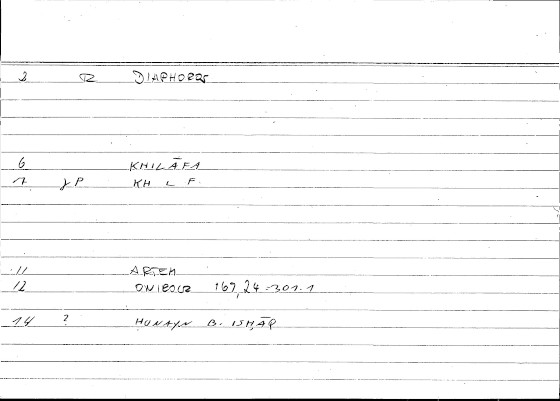 2 R DIAPHOROS
6 KHILĀFA
7 γP KH L F
11 ARTEM
12 ONIROCR 167,24-301.1
14 ? HUNAYN B. ISḤĀQ